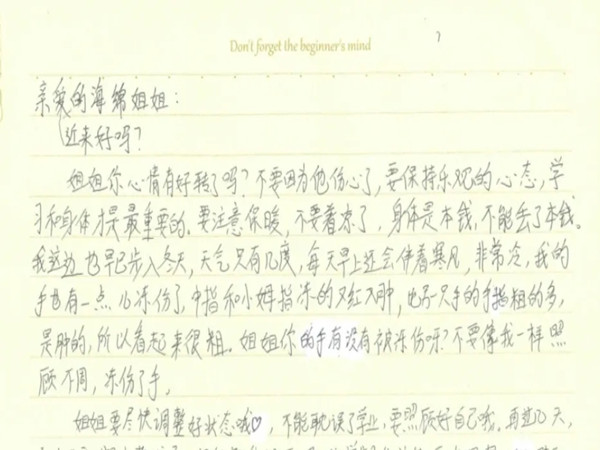 Don't forget the beginner's mind
亲爱的海绵姐姐：
近来好吗？
姐姐你心情有好转了吗？不要因为他伤心了，要保持乐观的心态，学
习和身体才是最重要的。要注意保暖，不要着凉了，身体是本钱，不能丢了本钱。
我这边也早已步入冬天，天气只有几度，每天早上还会伴着寒风，非常冷，我的
手也有一点儿冻伤了，中指和小姆指冻的又红又肿，比另一只手的手指粗的多，
是肿的，所以看起来很粗。姐姐你的手有没有被冻伤呀？不要像我一样照
顾不周，冻伤了手。
姐姐要尽快调整好状态哦♡，不能耽误了学业，要照顾好自己哦。再过几天，